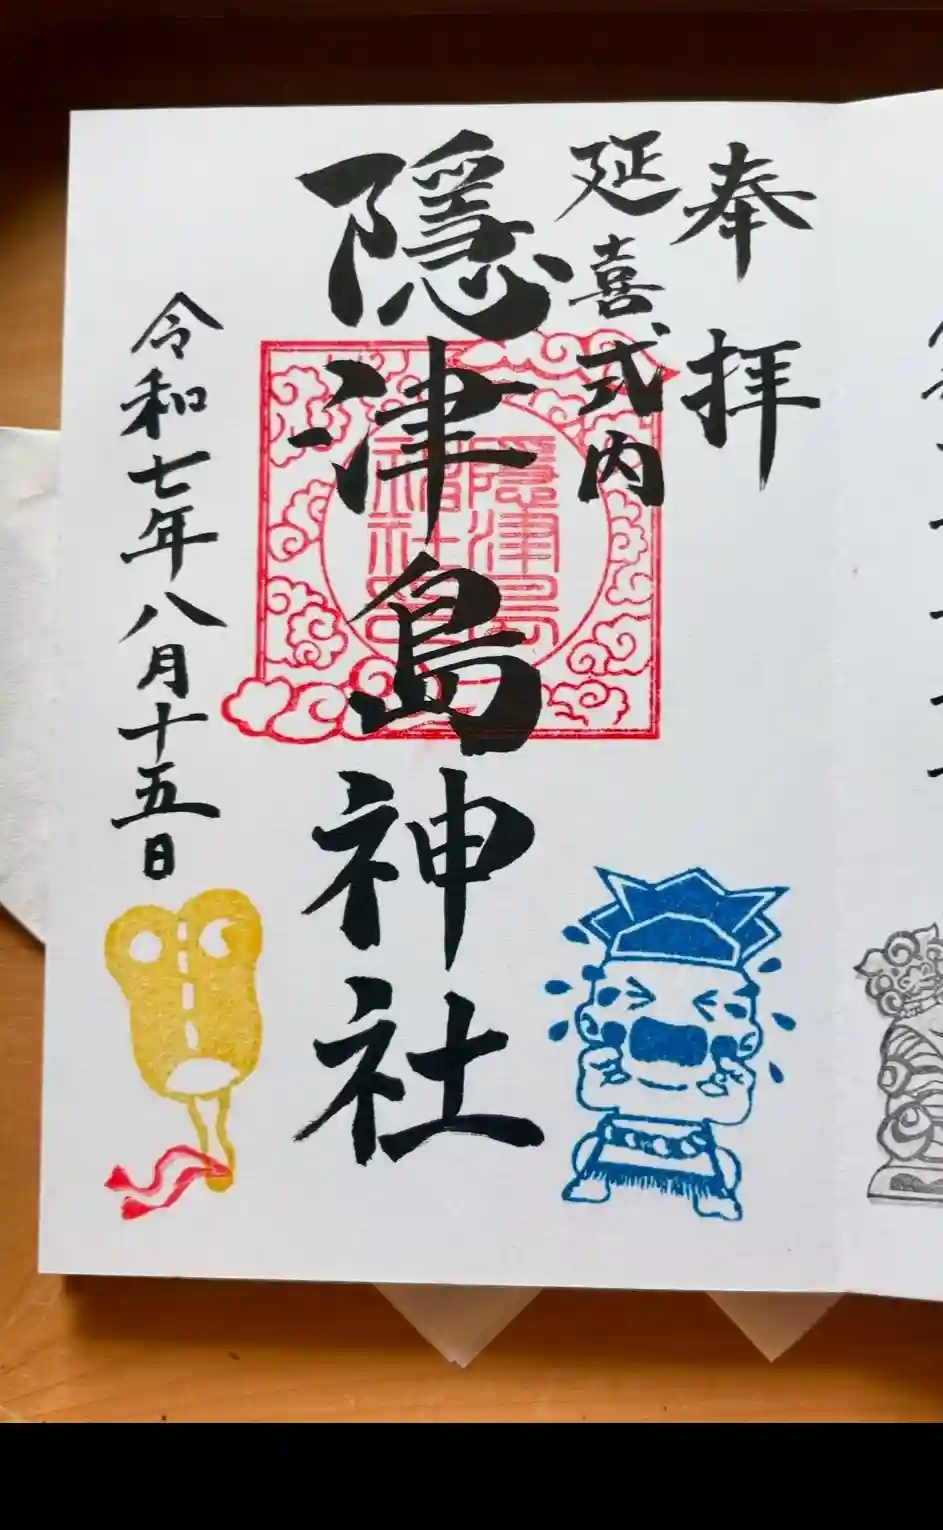 奉拝
延喜式内
隠津島神社
隠津島
神社
令和七年八月十五日